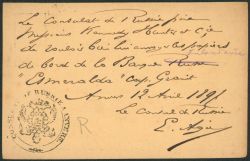 Le Consulat de Russie prie
Messieurs Kennedy Hunter et Cie
de vouloir bien les papiers
de bord de la Barque Russe
"Esmeralda" Cap.
Anvers 12 Avril 1891
Le Consul de Russie
E.
CONSULAT DE RUSSIE ANVERS
R